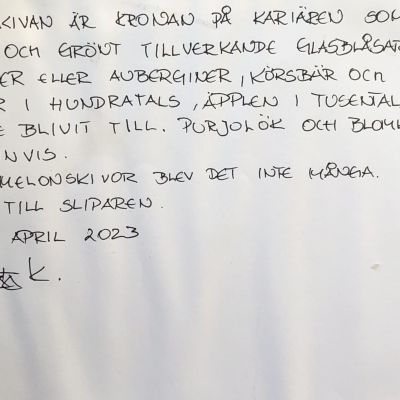 KIVAN ÄR KRONAN PÅ KARIÄREN SOM
OCH GRÖNT TILLVERKANDE GLASBLÅSAR
ER ELLER AUBERGINER, KÖRSBÄR OCH
R I HUNDRATALS, ÄPPLEN I TUSENTAL
E BLIVIT TILL. PURJOLÖK OCH BLOM
NVIS.
MELONSKIVOR BLEV DET INTE MÅNGA.
TILL SLIPAREN.
APRIL 2023
K.